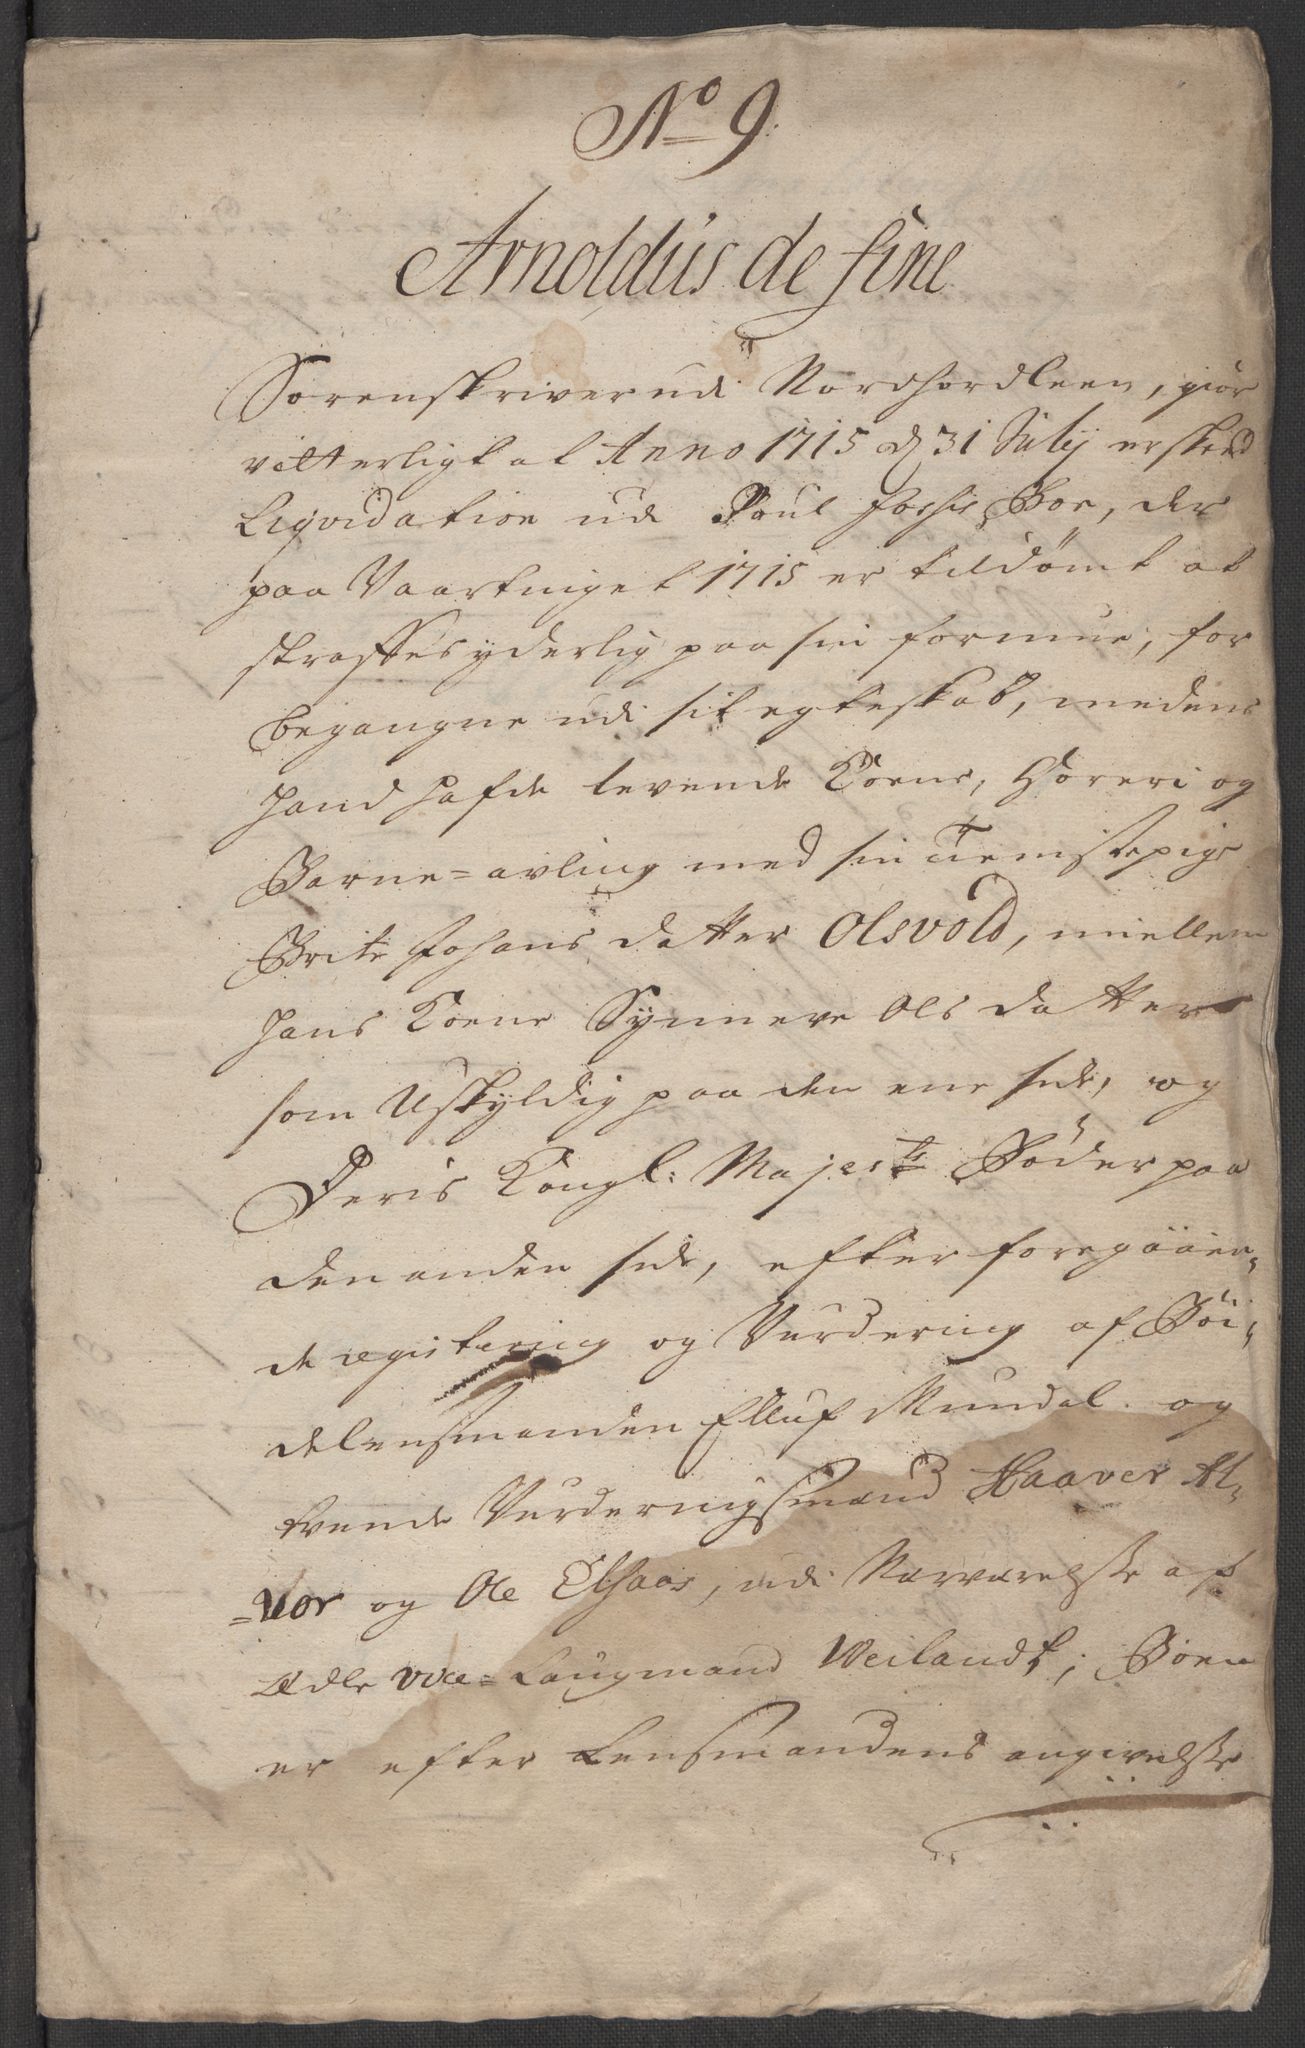 No 9.
Arnoldus de fine
Sorenskriver udi Nordhordleen, giør
vitterligt at Anno 1715 d 31 Julij er skeed
Liqvidation udi Poul Fosses Boe, der
paa Vaartinget 1715 er tildømt at
straffes yderlig paa sin formue, for
begangne udi sit egteskab, medens
hand hafde levende Koene, Horeri og
Barne=avling med sin Tienistepige
Brite Johans datter Olsvold, miellem
hans Koene Synneve Ols datter
som Uskyldig paa den ene side, og
Deris Kongl: Majests Bøder paa
den anden side, efter foregaaen-
de registering og Vurdering af Böi-
delensmanden Elluf Mundal og
tvende Vurderingsmænd Haaver Al-
=vor og Ole Elsaas, udi Nærværelsse af
Ædle vice=Laugmand Weilandt; Boen
er efter Lensmandens angivelsse